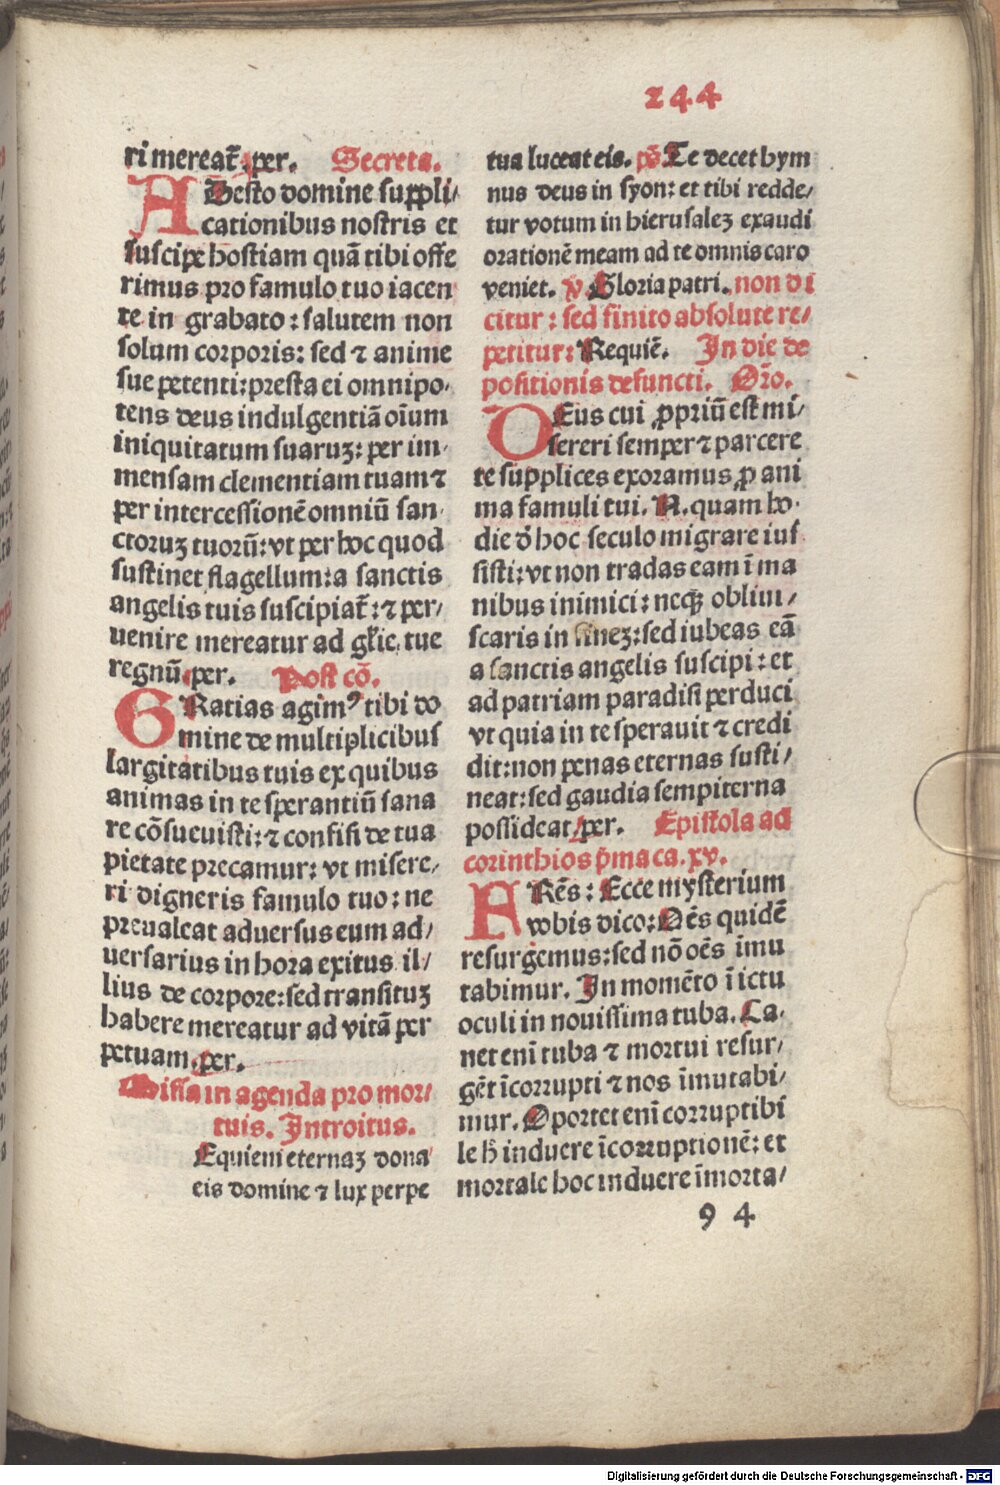 244
ri mereat᷑. per. Secreta.
ADesto domine suppli/
cationibus nostris et
suscipe hostiam quā tibi offe
rimus pro famulo tuo iacen
te in grabato: salutem non
solum corporis: sed ⁊ anime
sue petenti: presta ei omnipo-
tens deus indulgentiā oīum
iniquitatum suaruꝫ: per im-
mensam clementiam tuam ⁊
per intercessionē omniū san-
ctoruꝫ tuorū: vt per hoc quod
sustinet flagellum: a sanctis
angelis tuis suscipiat᷑: ⁊ per/
uenire mereatur ad gl̄ie tue
regnū. per. Post cō.
GRatias agimꝰ tibi do
mine de multiplicibus
largitatibus tuis ex quibus
animas in te sperantiū sana
re cōsueuisti: ⁊ confisi de tua
pietate precamur: vt misere/
ri digneris famulo tuo: ne
preualeat aduersus eum ad/
uersarius in hora exitus il/
lius de corpore: sed transituꝫ
habere mereatur ad vitā per
petuam. per.
Missa in agenda pro mor/
tuis. Introitus.
Equiem eternaꝫ dona
eis domine ⁊ lux perpe
tua luceat eis. ps̄. Te decet hym
nus deus in syon: et tibi redde/
tur votum in hierusaleꝫ exaudi
orationē meam ad te omnis caro
veniet. v. Gloria patri. non di
citur: sed finito absolute re/
petitur: Requiē. In die de
positionis defuncti. Oro.
DEus cui ꝓpriū est mi/
sereri semper ⁊ parcere
te supplices exoramus ꝓ ani
ma famuli tui. N. quam ho-
die d̄ hoc seculo migrare ius
sisti: vt non tradas eam ī ma
nibus inimici: neqꝫ obliui/
scaris in fineꝫ: sed iubeas eā
a sanctis angelis suscipi: et
ad patriam paradisi perduci
vt quia in te sperauit ⁊ credi
dit: non penas eternas susti/
neat: sed gaudia sempiterna
possideat. per. Epistola ad
corinthios p̄ma ca. xv.
FRēs: Ecce mysterium
vobis dico: Oēs quidē
resurgemus: sed nō oēs īmu
tabimur. In momēto ī ictu
oculi in nouissima tuba. Ca-
net enī tuba ⁊ mortui resur/
gēt īcorrupti ⁊ nos īmutabi/
mur. Oportet enī corruptibi
le h̄ induere īcorruptionē: et
mortale hoc induere īmorta/
9 4
Digitalisierung gefördert durch die Deutsche Forschungsgemeinschaft - DFG